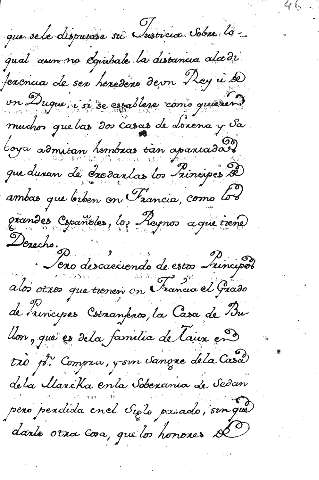 46
que se le disputase su Justicia sobre lo-
qual aun no equibale la distancia ala di
ferencia de ser heredero de un Rey ú de
un Duque, i si se establece como quieren
muchos que las dos casas de Lorena y Sa
boya admitan hembras tan apartadas
que duran de eredarlas los Principes de
ambas que biben en Francia, como los
grandes Españoles, los Reynos a que tiene
Derecho.
Pero descaeciendo de estos Principes
a los otros que tienen en Francia el Grado
de Principes Estranjeros, la Casa de Bu-
llon, que es dela familia de Taur en
tró pr. Compra, y sin Sangre de la Casa
de la Marcka en la Soberania de Sedan
pero perdida en el Siglo pasado, sin que
darle otra cosa, que los honores de